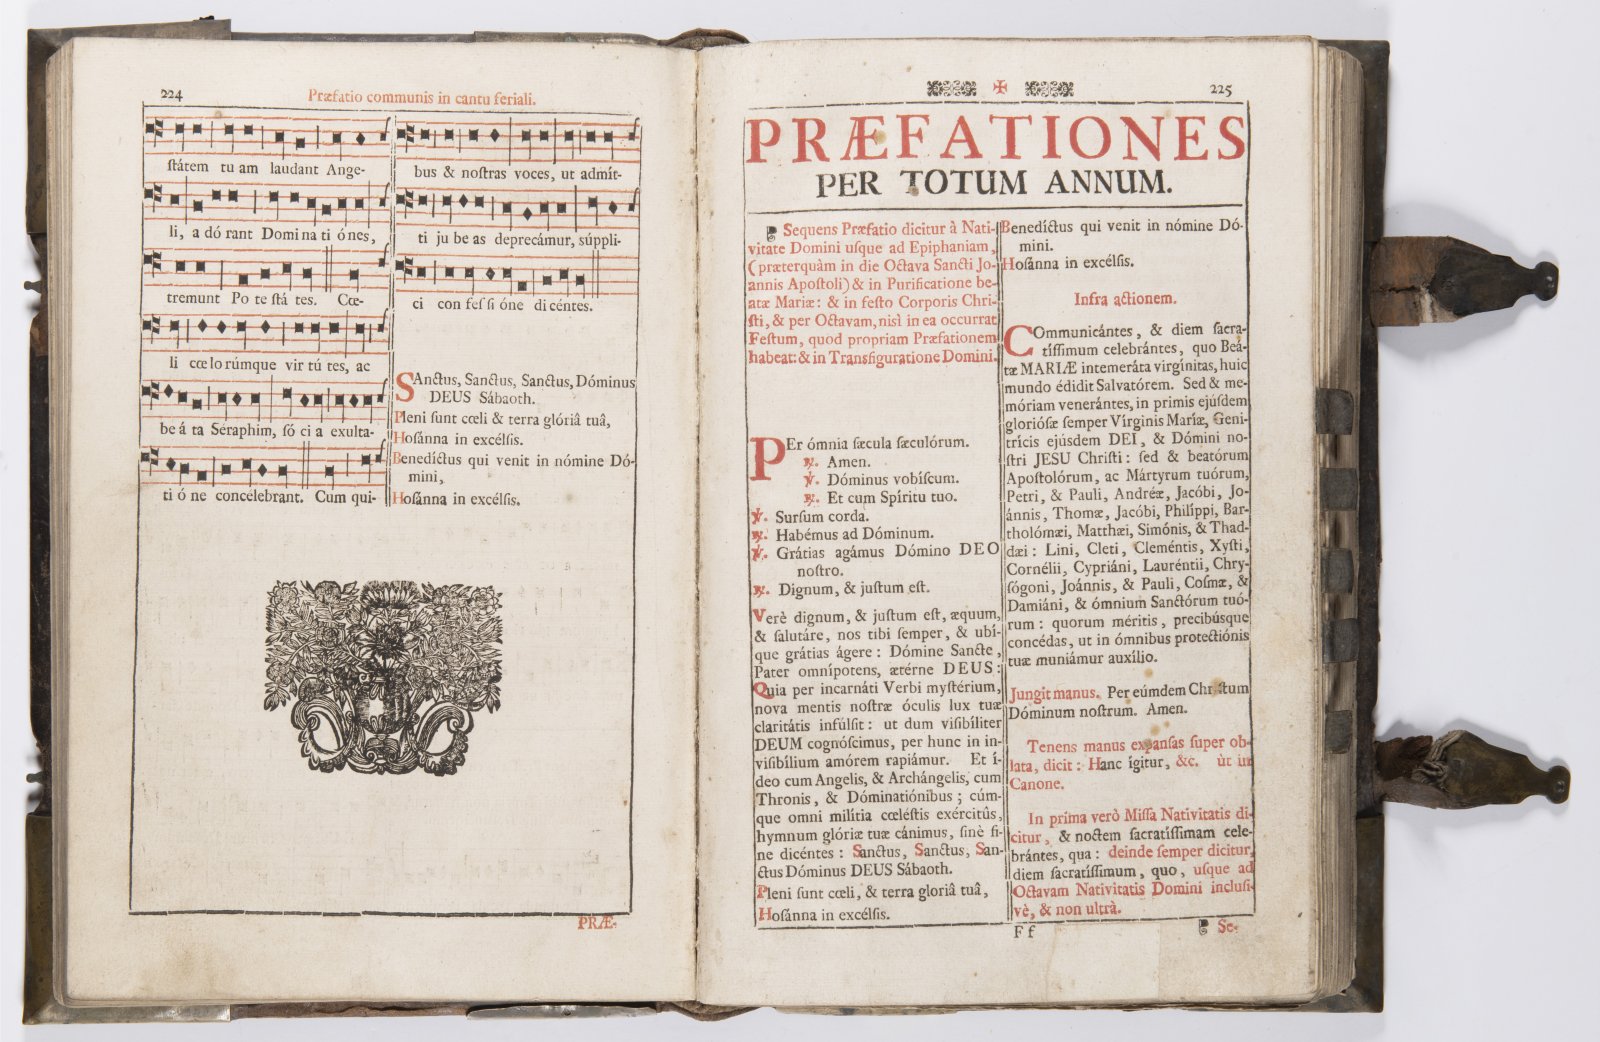 224
Præfatio communis in cantu feriali.
ſtátem tu am laudant Ange-
li, a dó rant Domina ti ónes,
tremunt Po te ſtá tes. Cœ-
li cœlo rúmque vir tú tes, ac
be á ta Séraphim, ſó ci a exulta-
ti ó ne concélebrant. Cum qui-
bus & noſtras voces, ut admít-
ti ju be as deprecámur, ſúppli-
ci con feſ ſi óne di céntes.
SAnctus, Sanctus, Sanctus, Dóminus
DEUS Sábaoth.
Pleni ſunt cœli & terra glóriâ tuâ,
Hoſánna in excélſis.
Benedíctus qui venit in nómine Dó-
mini,
Hoſánna in excélſis.
PRÆ-
225
PRÆFATIONES
PER TOTUM ANNUM.
Sequens Præfatio dicitur à Nati-
vitate Domini uſque ad Epiphaniam,
(præterquàm in die Octava Sancti Jo-
annis Apoſtoli) & in Purificatione be-
atæ Mariæ: & in feſto Corporis Chri-
ſti, & per Octavam, niſi in ea occurrat
Feſtum, quod propriam Præfationem
habeat: & in Transfiguratione Domini.
PEr ómnia ſæcula ſæculórum.
℟. Amen.
℣. Dóminus vobíſcum.
℟. Et cum Spíritu tuo.
℣. Surſum corda.
℟. Habémus ad Dóminum.
℣. Grátias agámus Dómino DEO
noſtro.
℟. Dignum, & juſtum eſt.
Verè dignum, & juſtum eſt, æquum,
& ſalutáre, nos tibi ſemper, & ubí-
que grátias ágere: Dómine Sancte,
Pater omnípotens, ætérne DEUS:
Quia per incarnáti Verbi myſtérium,
nova mentis noſtræ óculis lux tuæ
claritátis infúlſit: ut dum viſibíliter
DEUM cognóſcimus, per hunc in in-
viſibílium amórem rapiámur. Et í-
deo cum Angelis, & Archángelis, cum
Thronis, & Dóminatiónibus; cúm-
que omni milítia cœléſtis exércitûs,
hymnum glóriæ tuæ cánimus, ſinè fi-
ne dicéntes: Sanctus, Sanctus, San-
ctus Dóminus DEUS Sábaoth.
Pleni ſunt cœli, & terra gloriâ tuâ,
Hoſánna in excélſis.
Benedíctus qui venit in nómine Dó-
mini.
Hoſánna in excélſis.
Infra actionem.
COmmunicántes, & diem ſacra-
tíſſimum celebrántes, quo Beá-
tæ MARIÆ intemeráta virgínitas, huic
mundo édidit Salvatórem. Sed & me-
móriam venerántes, in primis ejúſdem
glorióſæ ſemper Vírginis Maríæ, Geni-
trícis ejúsdem DEI, & Dómini no-
ſtri JESU Chriſti: ſed & beatórum
Apoſtolórum, ac Mártyrum tuórum,
Petri, & Pauli, Andréæ, Jacóbi, Jo-
ánnis, Thomæ, Jacóbi, Philíppi, Bar-
tholómæi, Matthæi, Simónis, & Thad-
dæi: Lini, Cleti, Cleméntis, Xyſti,
Cornélii, Cypriáni, Lauréntii, Chry-
ſógoni, Joánnis, & Pauli, Coſmæ, &
Damiáni, & ómnium Sanctórum tuó-
rum: quorum méritis, precibúsque
concédas, ut in ómnibus protectiónis
tuæ muniámur auxílio.
Jungit manus. Per eúmdem Chriſtum
Dóminum noſtrum. Amen.
Tenens manus expanſas ſuper ob-
lata, dicit: Hanc ígitur, &c. ùt in
Canone.
In prima verò Miſſa Nativitatis di-
citur, & noctem ſacratíſſimam cele-
brántes, qua: deinde ſemper dicitur,
diem ſacratíſſimum, quo, uſque ad
Octavam Nativitatis Domini inclusi-
vè, & non ultrà.
F f
Se-